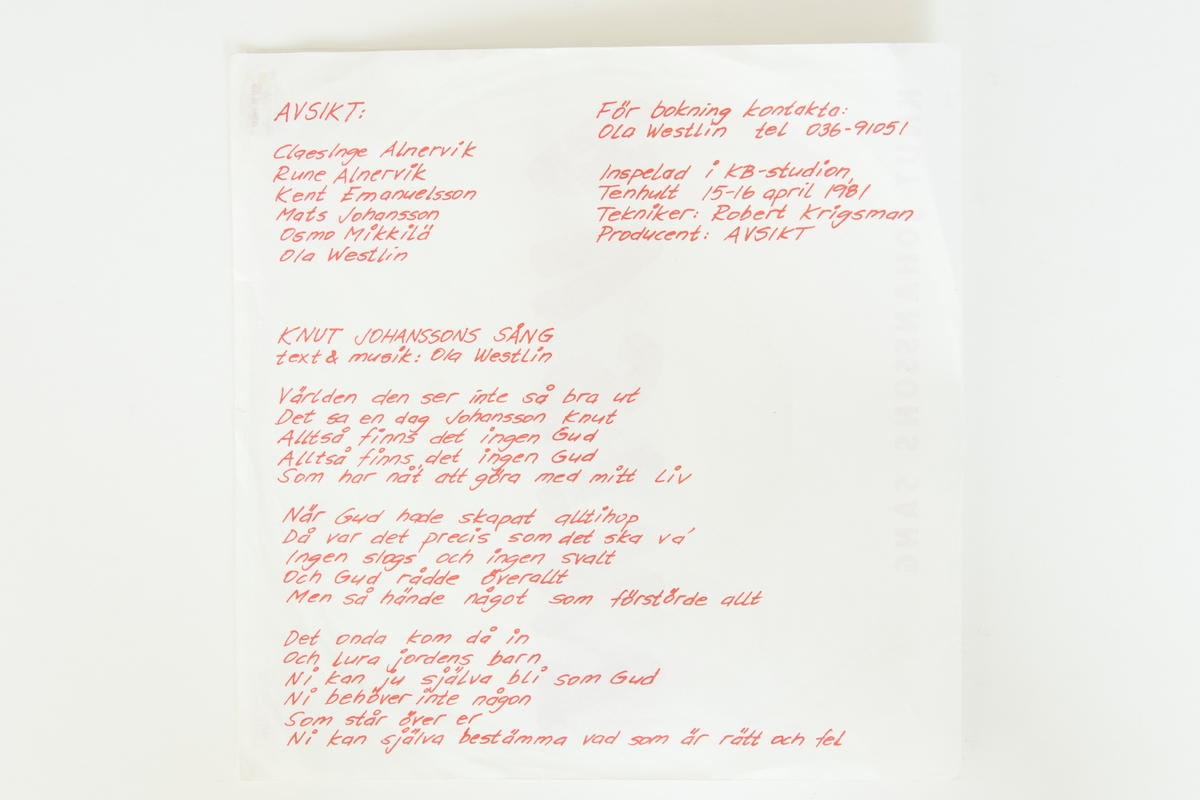 AVSIKT:
ClaesInge Alnervik
Rune Alnervik
Kent Emanuelsson
Mats Johansson
Osmo Mikkilä
Ola Westlin
För bokning kontakta:
Ola Westlin tel 036-91051
Inspelad i KB-studion,
Tenhult 15-16 april 1981
Tekniker: Robert Krigsman
Producent: AVSIKT
KNUT JOHANSSONS SÅNG
text & musik: Ola Westlin
Världen den ser inte så bra ut
Det sa en dag Johansson Knut
Alltså finns det ingen Gud
Alltså finns det ingen Gud
Som har nåt att göra med mitt Liv
När Gud hade skapat alltihop
Då var det precis som det ska va'
Ingen slogs och ingen svalt
Och Gud rådde överallt
Men så hände något som förstörde allt
Det onda kom då in
Och lura jordens barn
Ni kan ju själva bli som Gud
Ni behöver inte någon
Som står över er
Ni kan själva bestämma vad som är rätt och fel
KNUT JOHANSSONS SÅNG